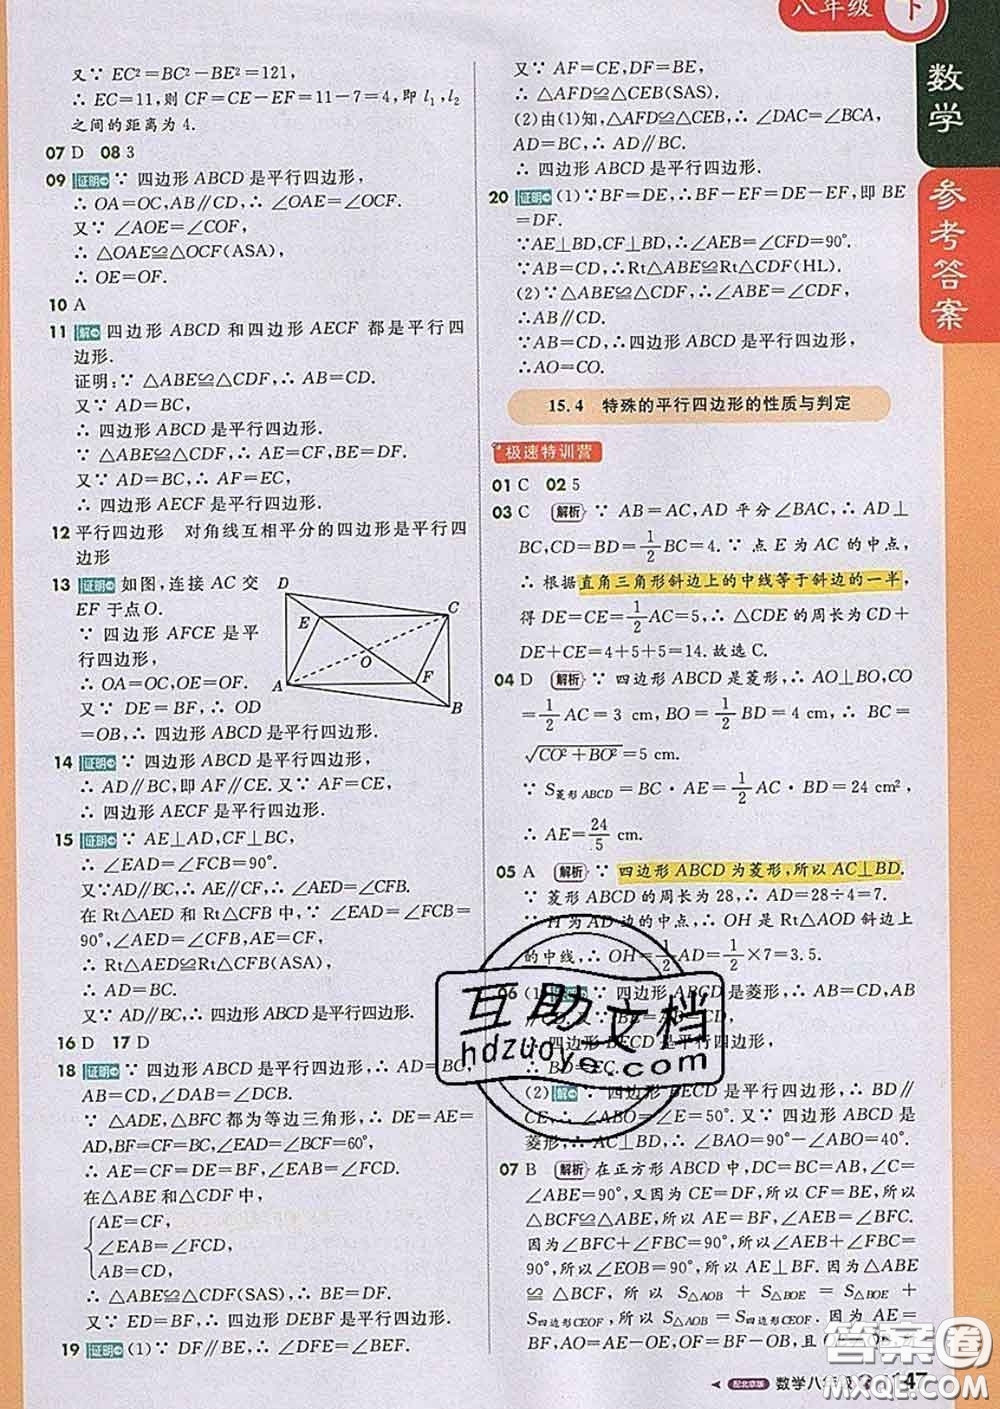 八年级 下
数学
参考答案
又∵ EC²=BC²-BE²=121,
∴ EC=11,则 CF=CE-EF=11-7=4,即 l₁,l₂
之间的距离为 4.
07 D 08 3
09 证明 ∵ 四边形 ABCD 是平行四边形,
∴ OA=OC,AB∥CD,∴ ∠OAE=∠OCF.
又∵ ∠AOE=∠COF,
∴ △OAE≌△OCF(ASA),
∴ OE=OF.
10 A
11 解 四边形 ABCD 和四边形 AECF 都是平行四
边形.
证明:∵ △ABE≌△CDF,∴ AB=CD.
又∵ AD=BC,
∴ 四边形 ABCD 是平行四边形.
∵ △ABE≌△CDF,∴ AE=CF,BE=DF.
又∵ AD=BC,∴ AF=EC,
∴ 四边形 AECF 是平行四边形.
12 平行四边形 对角线互相平分的四边形是平行四
边形
13 证明 如图,连接 AC 交
EF 于点O.
∵ 四边形 AFCE 是平
行四边形,
∴ OA=OC,OE=OF.
又∵ DE=BF,∴ OD
=OB,∴ 四边形 ABCD 是平行四边形.
D
C
E
O
F
A
B
14 证明 ∵ 四边形 ABCD 是平行四边形,
∴ AD∥BC,即 AF∥CE.又∵ AF=CE,
∴ 四边形 AECF 是平行四边形.
15 证明 ∵ AE⊥AD,CF⊥BC,
∴ ∠EAD=∠FCB=90°.
又∵AD∥BC,∴∠ADE=∠CBF.
在 Rt△AED 和 Rt△CFB 中,∵∠EAD=∠FCB=
90°,∠AED=∠CFB,AE=CF,
∴ Rt△AED≌Rt△CFB(ASA),
∴ AD=BC.
又∵ AD∥BC,∴ 四边形 ABCD 是平行四边形.
16 D 17 D
18 证明 ∵ 四边形 ABCD 是平行四边形,∴ AD=BC,
AB=CD,∠DAB=∠DCB.
∵ △ADE,△BFC 都为等边三角形,∴ DE=AE=
AD,BF=CF=BC,∠EAD=∠BCF=60°,
∴ AE=CF=DE=BF,∠EAB=∠FCD.
在△ABE 和△CDF 中,
AE=CF,
∠EAB=∠FCD,
AB=CD,
∴ △ABE≌△CDF(SAS),∴ BE=DF.
又∵ ED=BF,∴ 四边形 DEBF 是平行四边形.
19 证明 (1)∵ DF∥BE,∴ ∠DFE=∠BEF.
又∵ AF=CE,DF=BE,
∴ △AFD≌△CEB(SAS).
(2)由(1)知,△AFD≌△CEB,∴ ∠DAC=∠BCA,
AD=BC,∴ AD∥BC.
∴ 四边形 ABCD 是平行四边形.
20 证明 (1)∵BF=DE,∴BF-EF=DE-EF,即 BE
=DF.
∵AE⊥BD,CF⊥BD,∴∠AEB=∠CFD=90°.
∵AB=CD,∴Rt△ABE≌Rt△CDF(HL).
(2)∵△ABE≌△CDF,∴∠ABE=∠CDF,
∴AB∥CD.
∵AB=CD,∴四边形 ABCD 是平行四边形,
∴AO=CO.
15.4 特殊的平行四边形的性质与判定
极速特训营
01 C 02 5
03 C 解析 ∵ AB=AC,AD 平分∠BAC,∴ AD⊥
BC,CD=BD=1/2BC=4. ∵ 点 E 为 AC 的中点,
∴ 根据直角三角形斜边上的中线等于斜边的一半,
得 DE=CE=1/2AC=5,∴ △CDE 的周长为 CD+
DE+CE=4+5+5=14.故选 C.
04 D 解析 ∵ 四边形 ABCD 是菱形,∴ AO⊥BO,CO
=1/2AC=3 cm,BO=1/2BD=4 cm,∴ BC=
√(CO²+BO²)=5 cm.
∵ S菱形ABCD=BC·AE=1/2AC×BD=24 cm²,
∴ AE=24/5 cm.
05 A 解析 ∵ 四边形 ABCD 为菱形,所以 AC⊥BD.
∵ 菱形 ABCD 的周长为 28,∴ AD=28÷4=7.
∵ H 为 AD 边的中点,∴ OH 是 Rt△AOD 斜边上
的中线,∴ OH=1/2AD=1/2×7=3.5.
06 (1) 证明 ∵ 四边形 ABCD 是菱形,∴ AB=CD,AB
∥CD.
∵ 四边形 BECD 是平行四边形,
∴ BD=EC.
(2) 解 ∵ 四边形 BECD 是平行四边形,∴ BD∥
CE,∴ ∠ABO=∠E=50°. 又∵ 四边形 ABCD 是
菱形,∴ AC⊥BD,∴ ∠BAO=90°-∠ABO=40°.
07 B 解析 在正方形 ABCD 中,DC=BC=AB,∠C=
∠ABE=90°,又因为 CE=DF,所以 CF=BE,所以
△BCF≌△ABE,所以 AE=BF,∠AEB=∠BFC.
因为∠BFC+∠FBC=90°,所以∠AEB+∠FBC=
90°,所以∠EOB=90°,所以 AE⊥BF. 因为△ABE
≌△BCF,所以 S△AOB+S△BOE=S△BOE+
S四边形CEOF,所以 S△AOB=S四边形CEOF. 因为 AE=
BF,AO=AE-OE,OF=BF-OB,且 OE
配北京版 数学八年级 下 147
互助文档
hdzuoye.com
答案圈
MXQE.COM